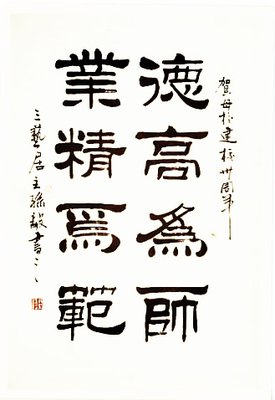 賀母校建校卅周年
德高為師
業精爲範
三藝居主孫毅書